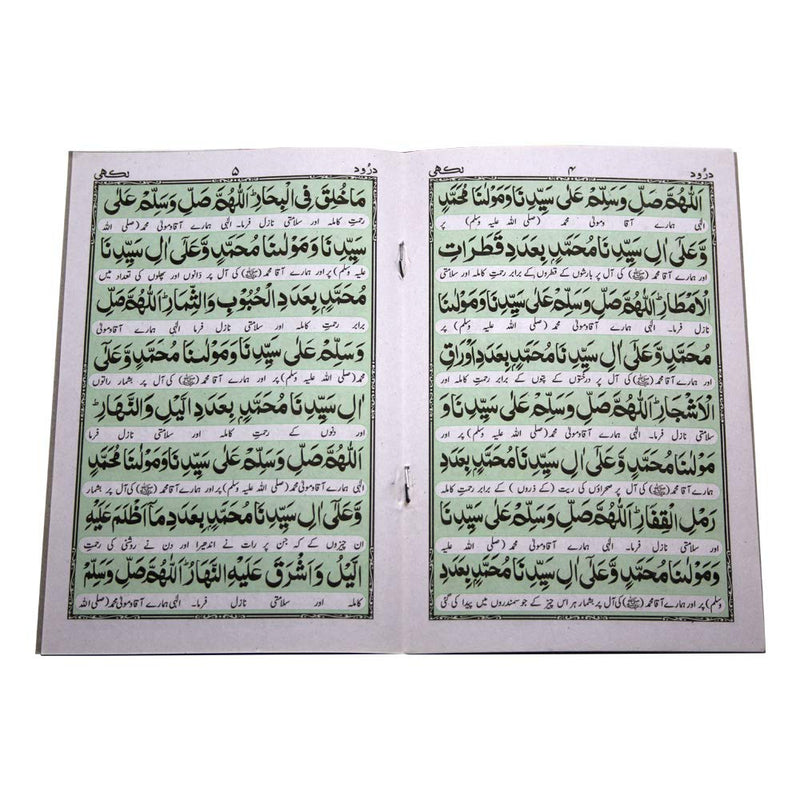 درُود ۴ لکھی
اَللّٰهُمَّ صَلِّ وَسَلِّمْ عَلٰی سَیِّدِنَا وَمَوْلٰنَا مُحَمَّدٍ
الٰہی ہمارے آقا ومولیٰ محمد (صلی اللہ علیہ وسلم) پر
وَّعَلٰۤی اٰلِ سَیِّدِنَا مُحَمَّدٍۭ بِعَدَدِ قَطَرَاتِ
اور ہمارے آقا محمد (ﷺ) کی آل پر بارشوں کے قطروں کے برابر رحمت کاملہ اور سلامتی
الْاَمْطَارِؕ اَللّٰهُمَّ صَلِّ وَسَلِّمْ عَلٰی سَیِّدِنَا وَمَوْلٰنَا
نازل فرما۔ الٰہی ہمارے آقا ومولیٰ محمد (صلی اللہ علیہ وسلم) پر
مُحَمَّدٍ وَّعَلٰۤی اٰلِ سَیِّدِنَا مُحَمَّدٍۭ بِعَدَدِ اَوْرَاقِ
اور ہمارے آقا محمد (ﷺ) کی آل پر درختوں کے پتوں کے برابر رحمت کاملہ اور
الْاَشْجَارِؕ اَللّٰهُمَّ صَلِّ وَسَلِّمْ عَلٰی سَیِّدِنَا وَ
سلامتی نازل فرما۔ الٰہی ہمارے آقا ومولیٰ محمد (صلی اللہ علیہ وسلم) پر اور
مَوْلٰنَا مُحَمَّدٍ وَّعَلٰۤی اٰلِ سَیِّدِنَا مُحَمَّدٍۭ بِعَدَدِ
ہمارے آقا محمد (ﷺ) کی آل پر صحراؤں کی ریت (کے ذروں) کے برابر رحمت کاملہ
رَمْلِ الْقِفَارِؕ اَللّٰهُمَّ صَلِّ وَسَلِّمْ عَلٰی سَیِّدِنَا
اور سلامتی نازل فرما۔ الٰہی ہمارے آقا ومولیٰ محمد (صلی اللہ علیہ
وَمَوْلٰنَا مُحَمَّدٍ وَّعَلٰۤی اٰلِ سَیِّدِنَا مُحَمَّدٍۭ بِعَدَدِ
وسلم) پر اور ہمارے آقا محمد (ﷺ) کی آل پر بشمار ہر اس چیز کے جو سمندروں میں پیدا کی گئی
درُود ۵ لکھی
مَا خُلِقَ فِی الْبِحَارِؕ اَللّٰهُمَّ صَلِّ وَسَلِّمْ عَلٰی
رحمت کاملہ اور سلامتی نازل فرما۔ الٰہی ہمارے آقا ومولیٰ محمد (صلی اللہ
سَیِّدِنَا وَمَوْلٰنَا مُحَمَّدٍ وَّعَلٰۤی اٰلِ سَیِّدِنَا
علیہ وسلم) پر اور ہمارے آقا محمد (ﷺ) کی آل پر دانوں اور پھلوں کی تعداد میں
مُحَمَّدٍۭ بِعَدَدِ الْحُبُوْبِ وَالثِّمَارِؕ اَللّٰهُمَّ صَلِّ
برابر رحمت کاملہ اور سلامتی نازل فرما الٰہی ہمارے آقا ومولیٰ
وَسَلِّمْ عَلٰی سَیِّدِنَا وَمَوْلٰنَا مُحَمَّدٍ وَّعَلٰۤی
محمد (صلی اللہ علیہ وسلم) پر اور ہمارے آقا محمد (ﷺ) کی آل پر بشمار راتوں
اٰلِ سَیِّدِنَا مُحَمَّدٍۭ بِعَدَدِ الَّیْلِ وَالنَّهَارِؕ
اور دنوں کے رحمت کاملہ اور سلامتی نازل فرما
اَللّٰهُمَّ صَلِّ وَسَلِّمْ عَلٰی سَیِّدِنَا وَمَوْلٰنَا مُحَمَّدٍ
الٰہی ہمارے آقا ومولیٰ محمد (صلی اللہ علیہ وسلم) پر اور ہمارے آقا محمد (ﷺ) کی آل پر بشمار
وَّعَلٰۤی اٰلِ سَیِّدِنَا مُحَمَّدٍۭ بِعَدَدِ مَاۤ اَظْلَمَ عَلَیْهِ
ان چیزوں کے کہ جن پر رات نے اندھیرا اور دن نے روشنی کی رحمت
الَّیْلُ وَاَشْرَقَ عَلَیْهِ النَّهَارُؕ اَللّٰهُمَّ صَلِّ وَسَلِّمْ
کاملہ اور سلامتی نازل فرما۔ الٰہی ہمارے آقا ومولیٰ محمد (صلی اللہ